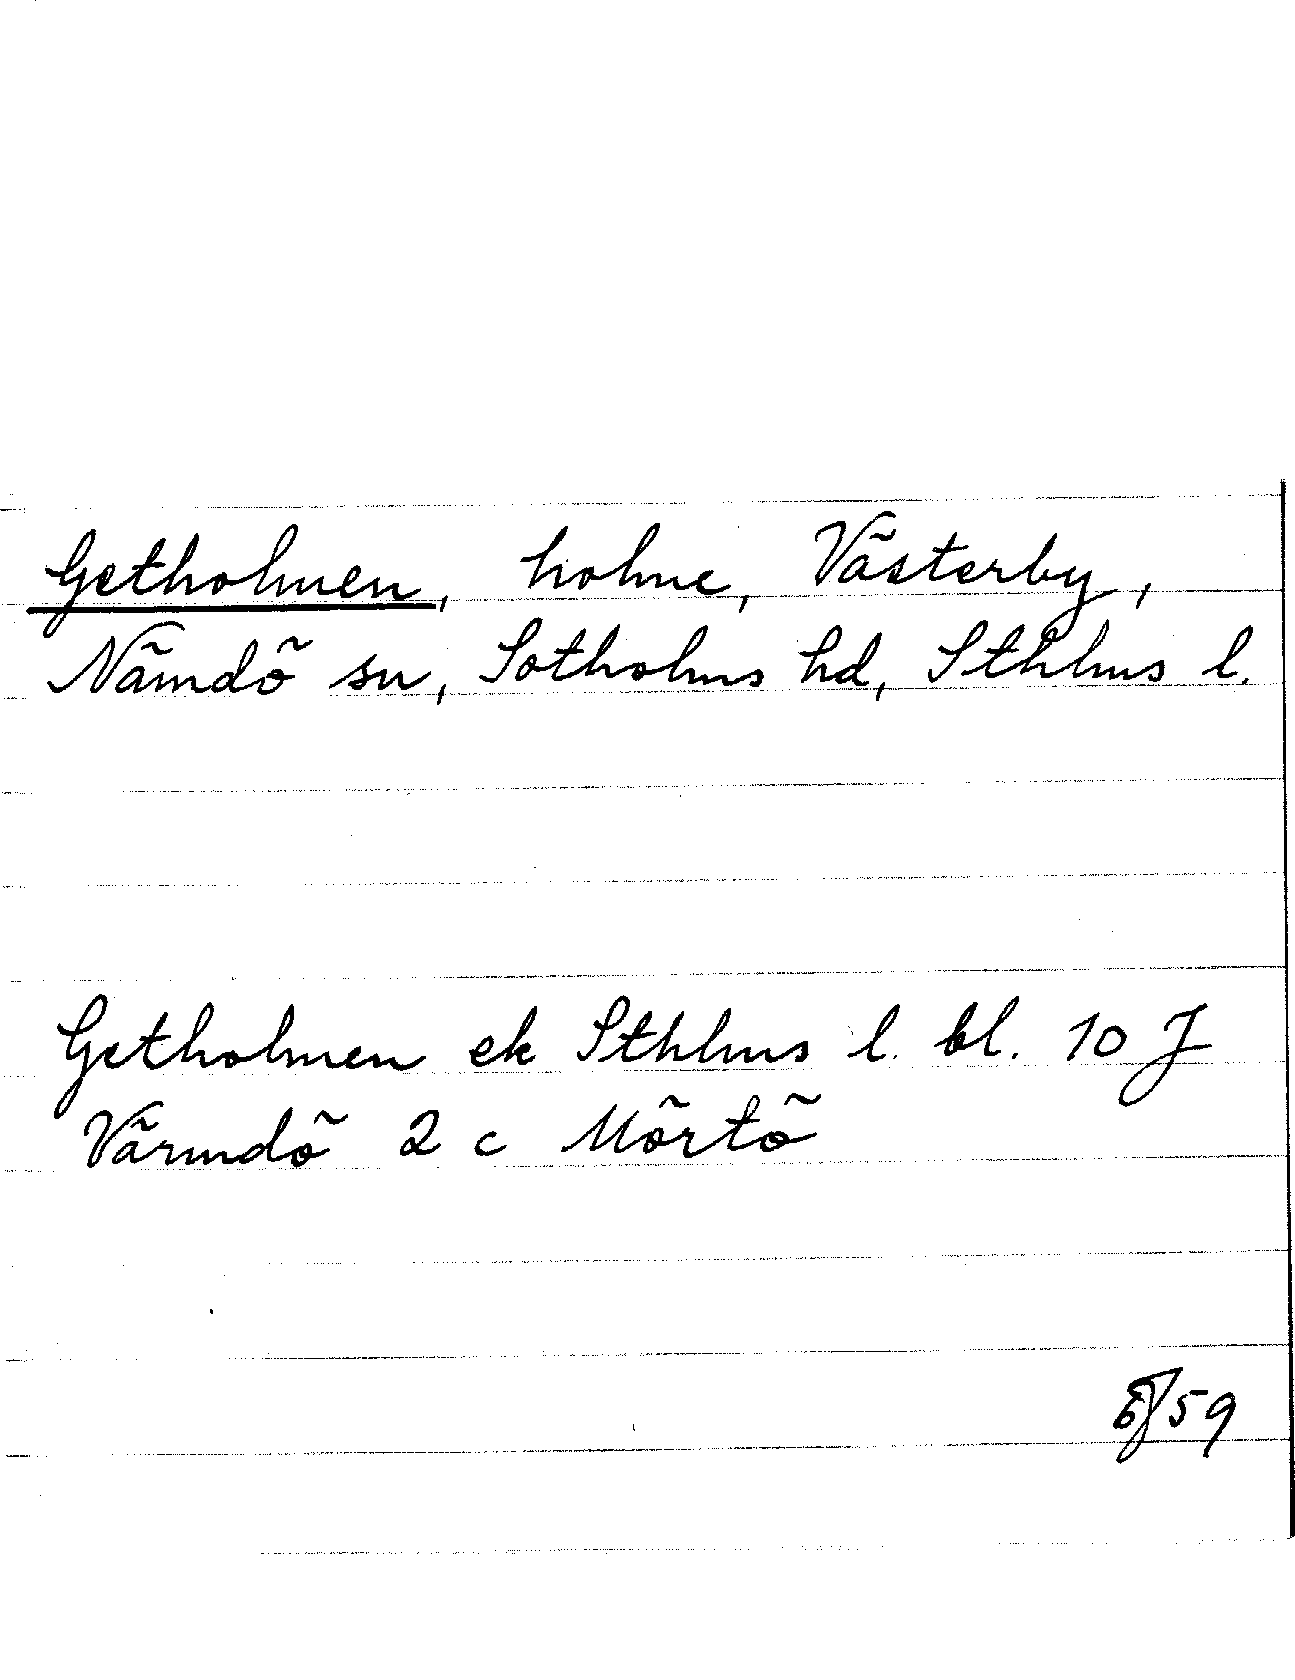 Getholmen, holme, Västerby,
Nämdö sn, Sotholms hd, Sthlms l.
Getholmen ek Sthlms l. bl. 10 J
Värmdö 2 c Mörtö
59